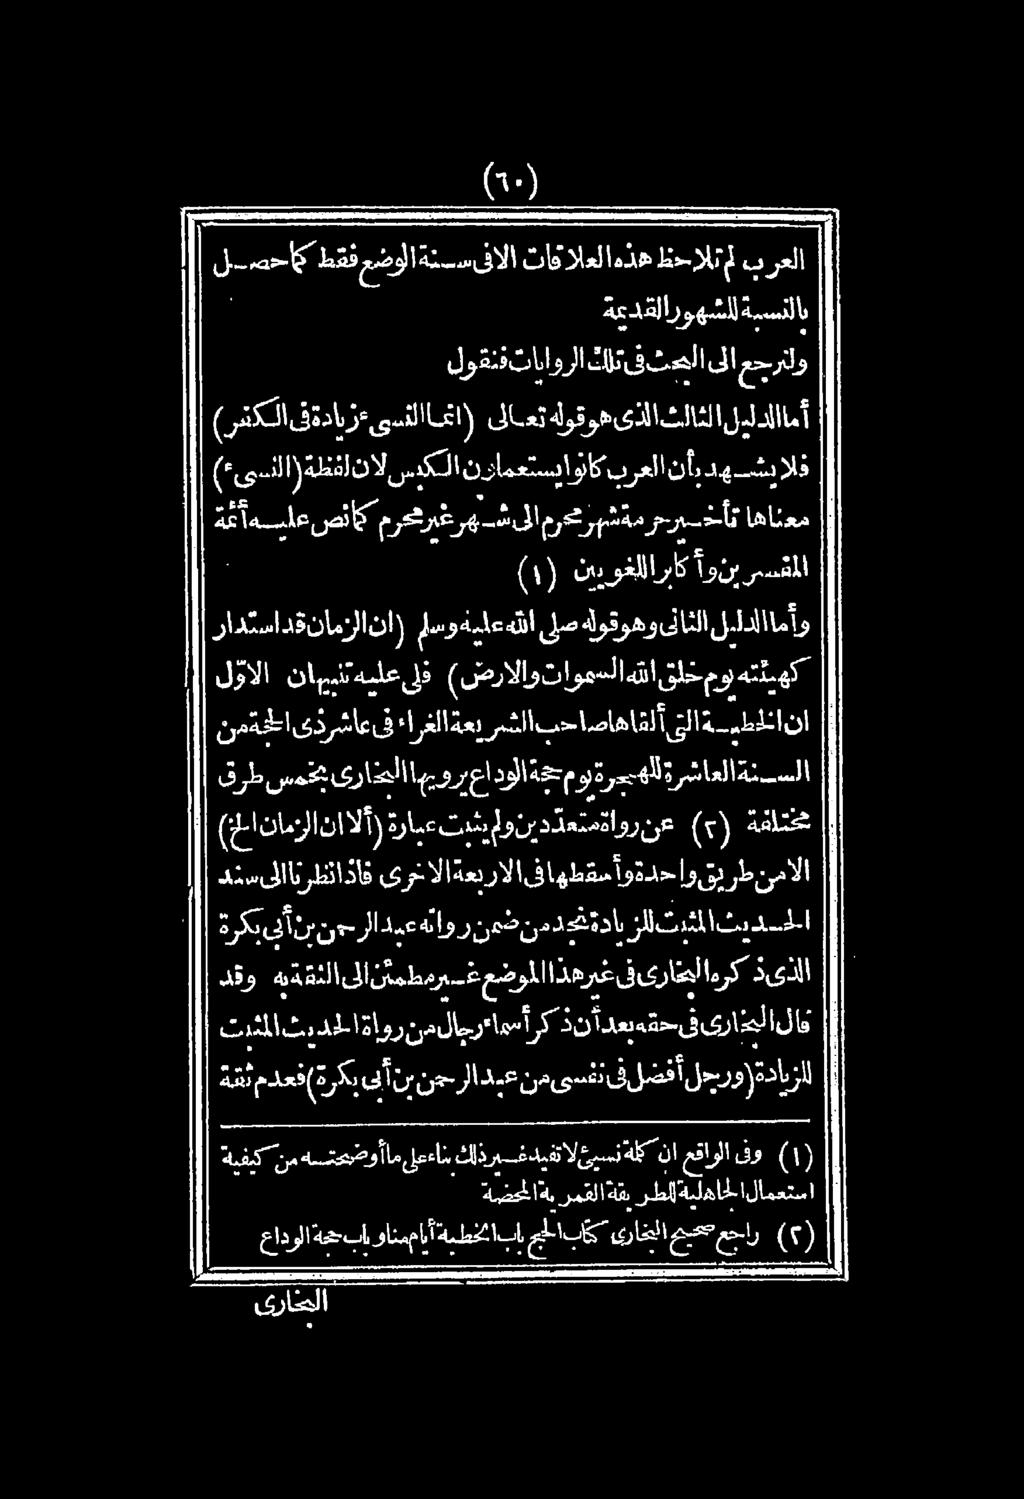 (٦٠)
العرب لم تلاحظ هذه العلاقات الا فى سنة الوضع فقط كما حصل
بالنسبة للشهور القديمة
ولنرجع الى البحث فى تلك الروايات فنقول
أما الدليل الثالث الذى هو قوله تعالى (انما النسىء زيادة فى الكفر)
فلا يشهد بأن العرب كانوا يستعملون الكبس لان لفظة (النسىء)
معناها تأخير حرمة شهر محرم الى شهر غير محرم كما نص عليه أئمة
المفسرين وأكابر اللغويين (١)
وأما الدليل الثانى وهو قوله صلى الله عليه وسلم (ان الزمان قد استدار
كهيئته يوم خلق الله السموات والارض) فلى عليه تنبيهان الاوّل
ان الخطبة التى ألقاها صاحب الشريعة الغراء فى عاشر ذى الحجة من
السنة العاشرة للهجرة يوم حجة الوداع يرويها البخارى بخمس طرق
مختلفة (٢) عن رواة متعدّدين ولم يثبت عبارة (ألا ان الزمان الخ)
الا من طريق واحدة وأسقطها فى الاربعة الاخرى فاذا نظرنا الى سند
الحديث المثبت للزيادة نجد من ضمن رواته عبد الرحمن بن أبى بكرة
الذى ذكره البخارى فى غير هذا الموضع غير مطمئن الى الثقة به وقد
قال البخارى فى حقه بعد أن ذكر أسماء رجال من رواة الحديث المثبت
للزيادة (ورجل أفضل فى نفسى من عبد الرحمن بن أبى بكرة) فعدم ثقة
(١) وفى الواقع ان كلة نسىء لا تفيد غير ذلك بناء على ما أوضحته من كيفية
استعمال الجاهلية للطريقة القمرية المحضة
(٢) راجع صحيح البخارى كتاب الحج باب الخطبة أيام منا وباب حجة الوداع
البخارى